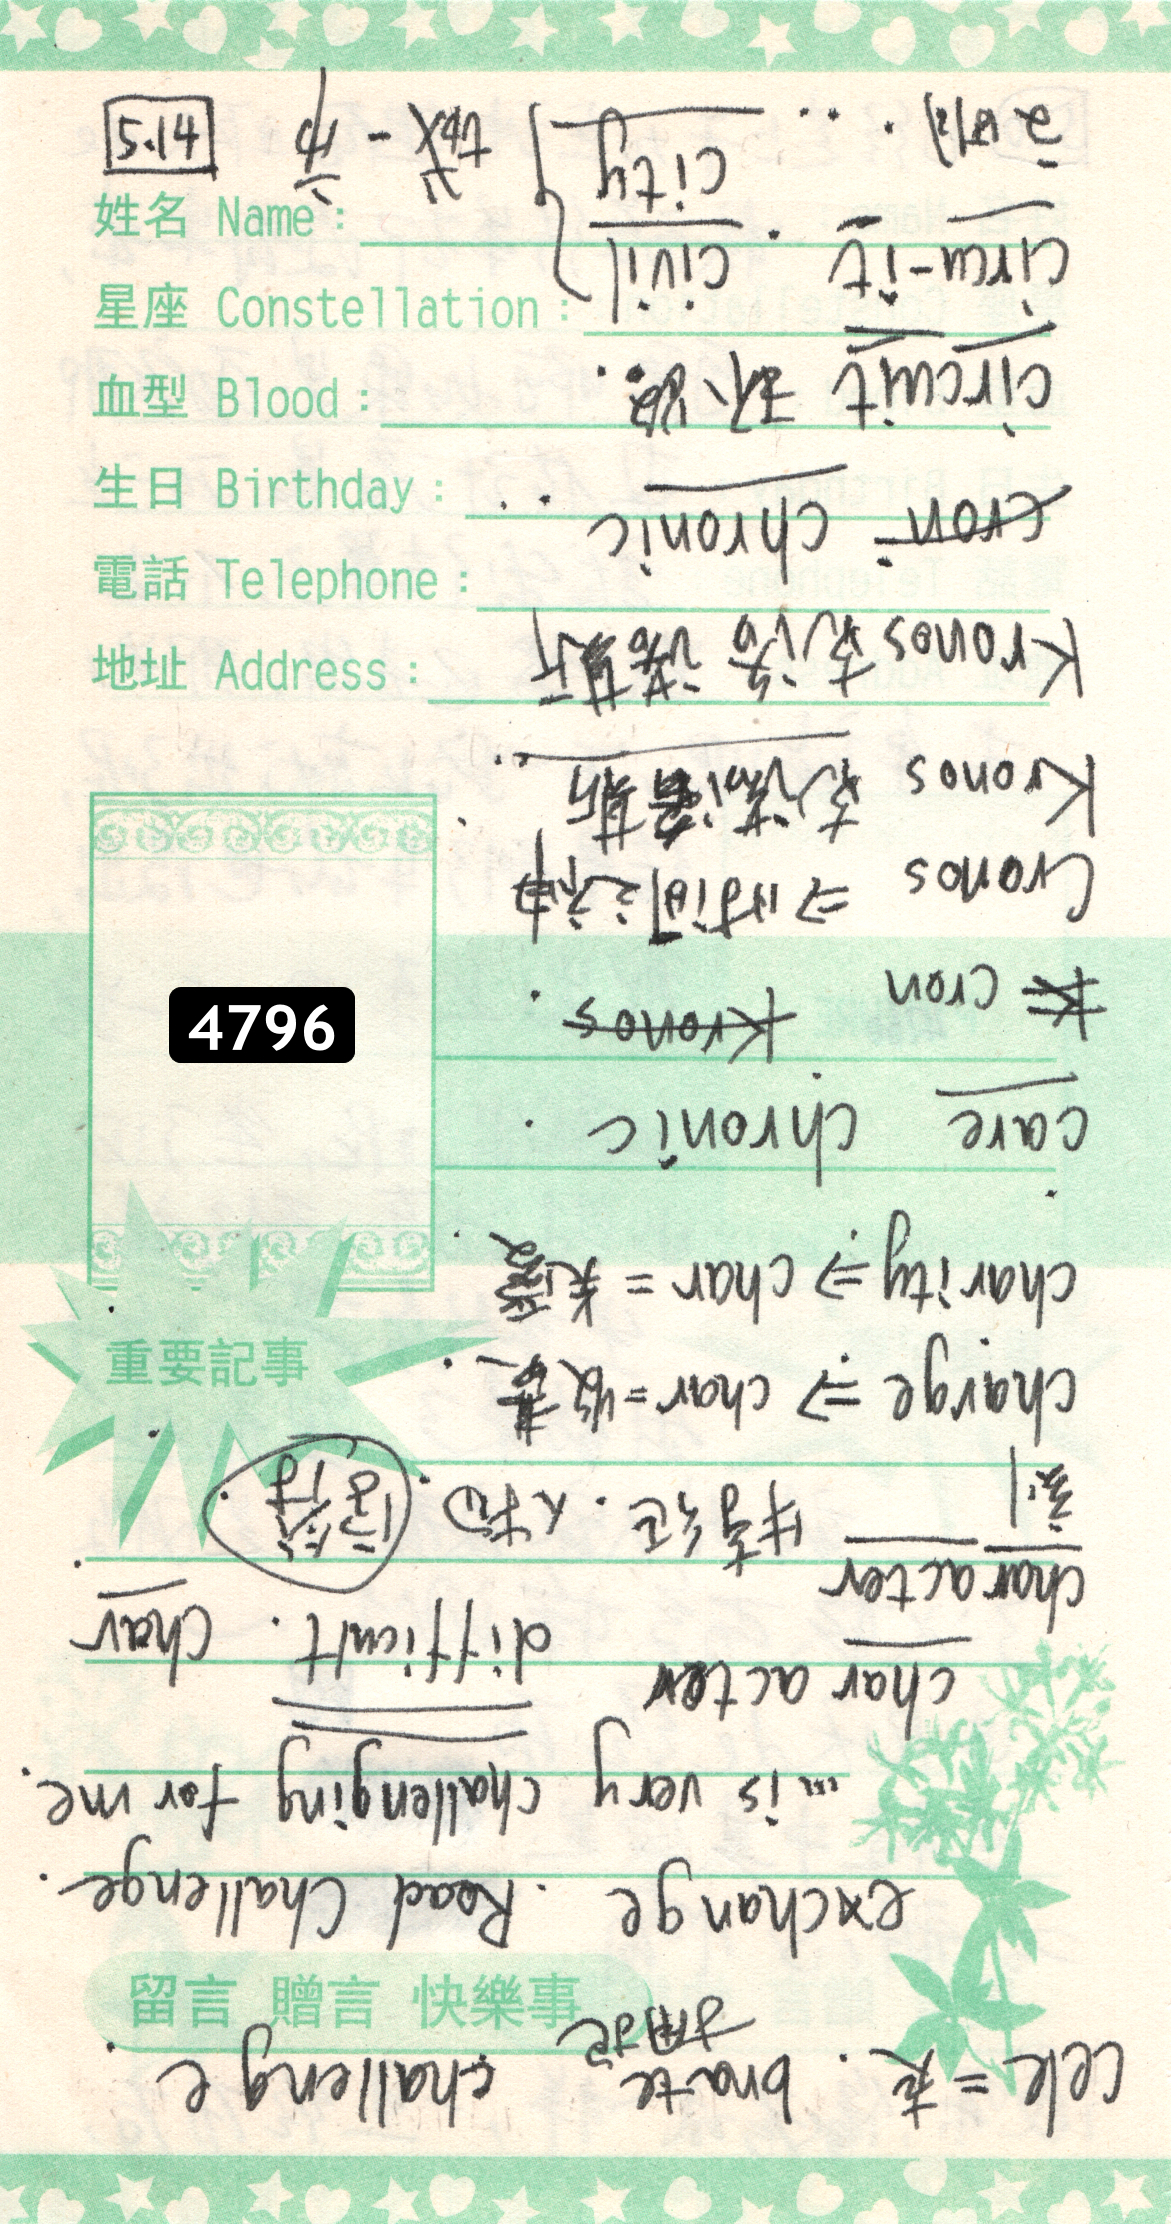 5.14
姓名 Name：
星座 Constellation：
血型 Blood：
生日 Birthday：
電話 Telephone：
地址 Address：
4796
重要記事
留言 贈言 快樂事
cek = 克. brate challenge
exchange. Road Challenge.
... is very challenging for me.
character difficult. char
character 特享征. 人物.
charge ⇒ char = 收费.
charity ⇒ char = 关爱.
care chronic.
cron Kronos.
Cronos ⇒ 时间之神
Kronos 克潘诺斯
Kronos 克洛诺斯
cron = chronic ..
circuit 环路.
circu-it. civil
文明. . . city } 城-市